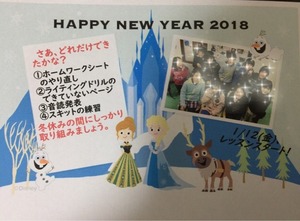 HAPPY NEW YEAR 2018
さあ、どれだけでき
たかな？
①ホームワークシート
のやり直し
②ライティングドリルの
できていないページ
③音読発表
④スキットの練習
冬休みの間にしっかり
取り組みましょう。
1/12(金)
レッスンスタート！
©Disney